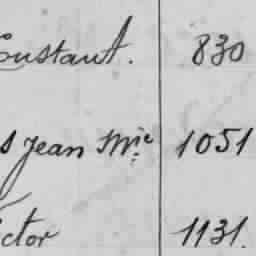 Constant. 830
s Jean Mie 1051
ictor 1131.